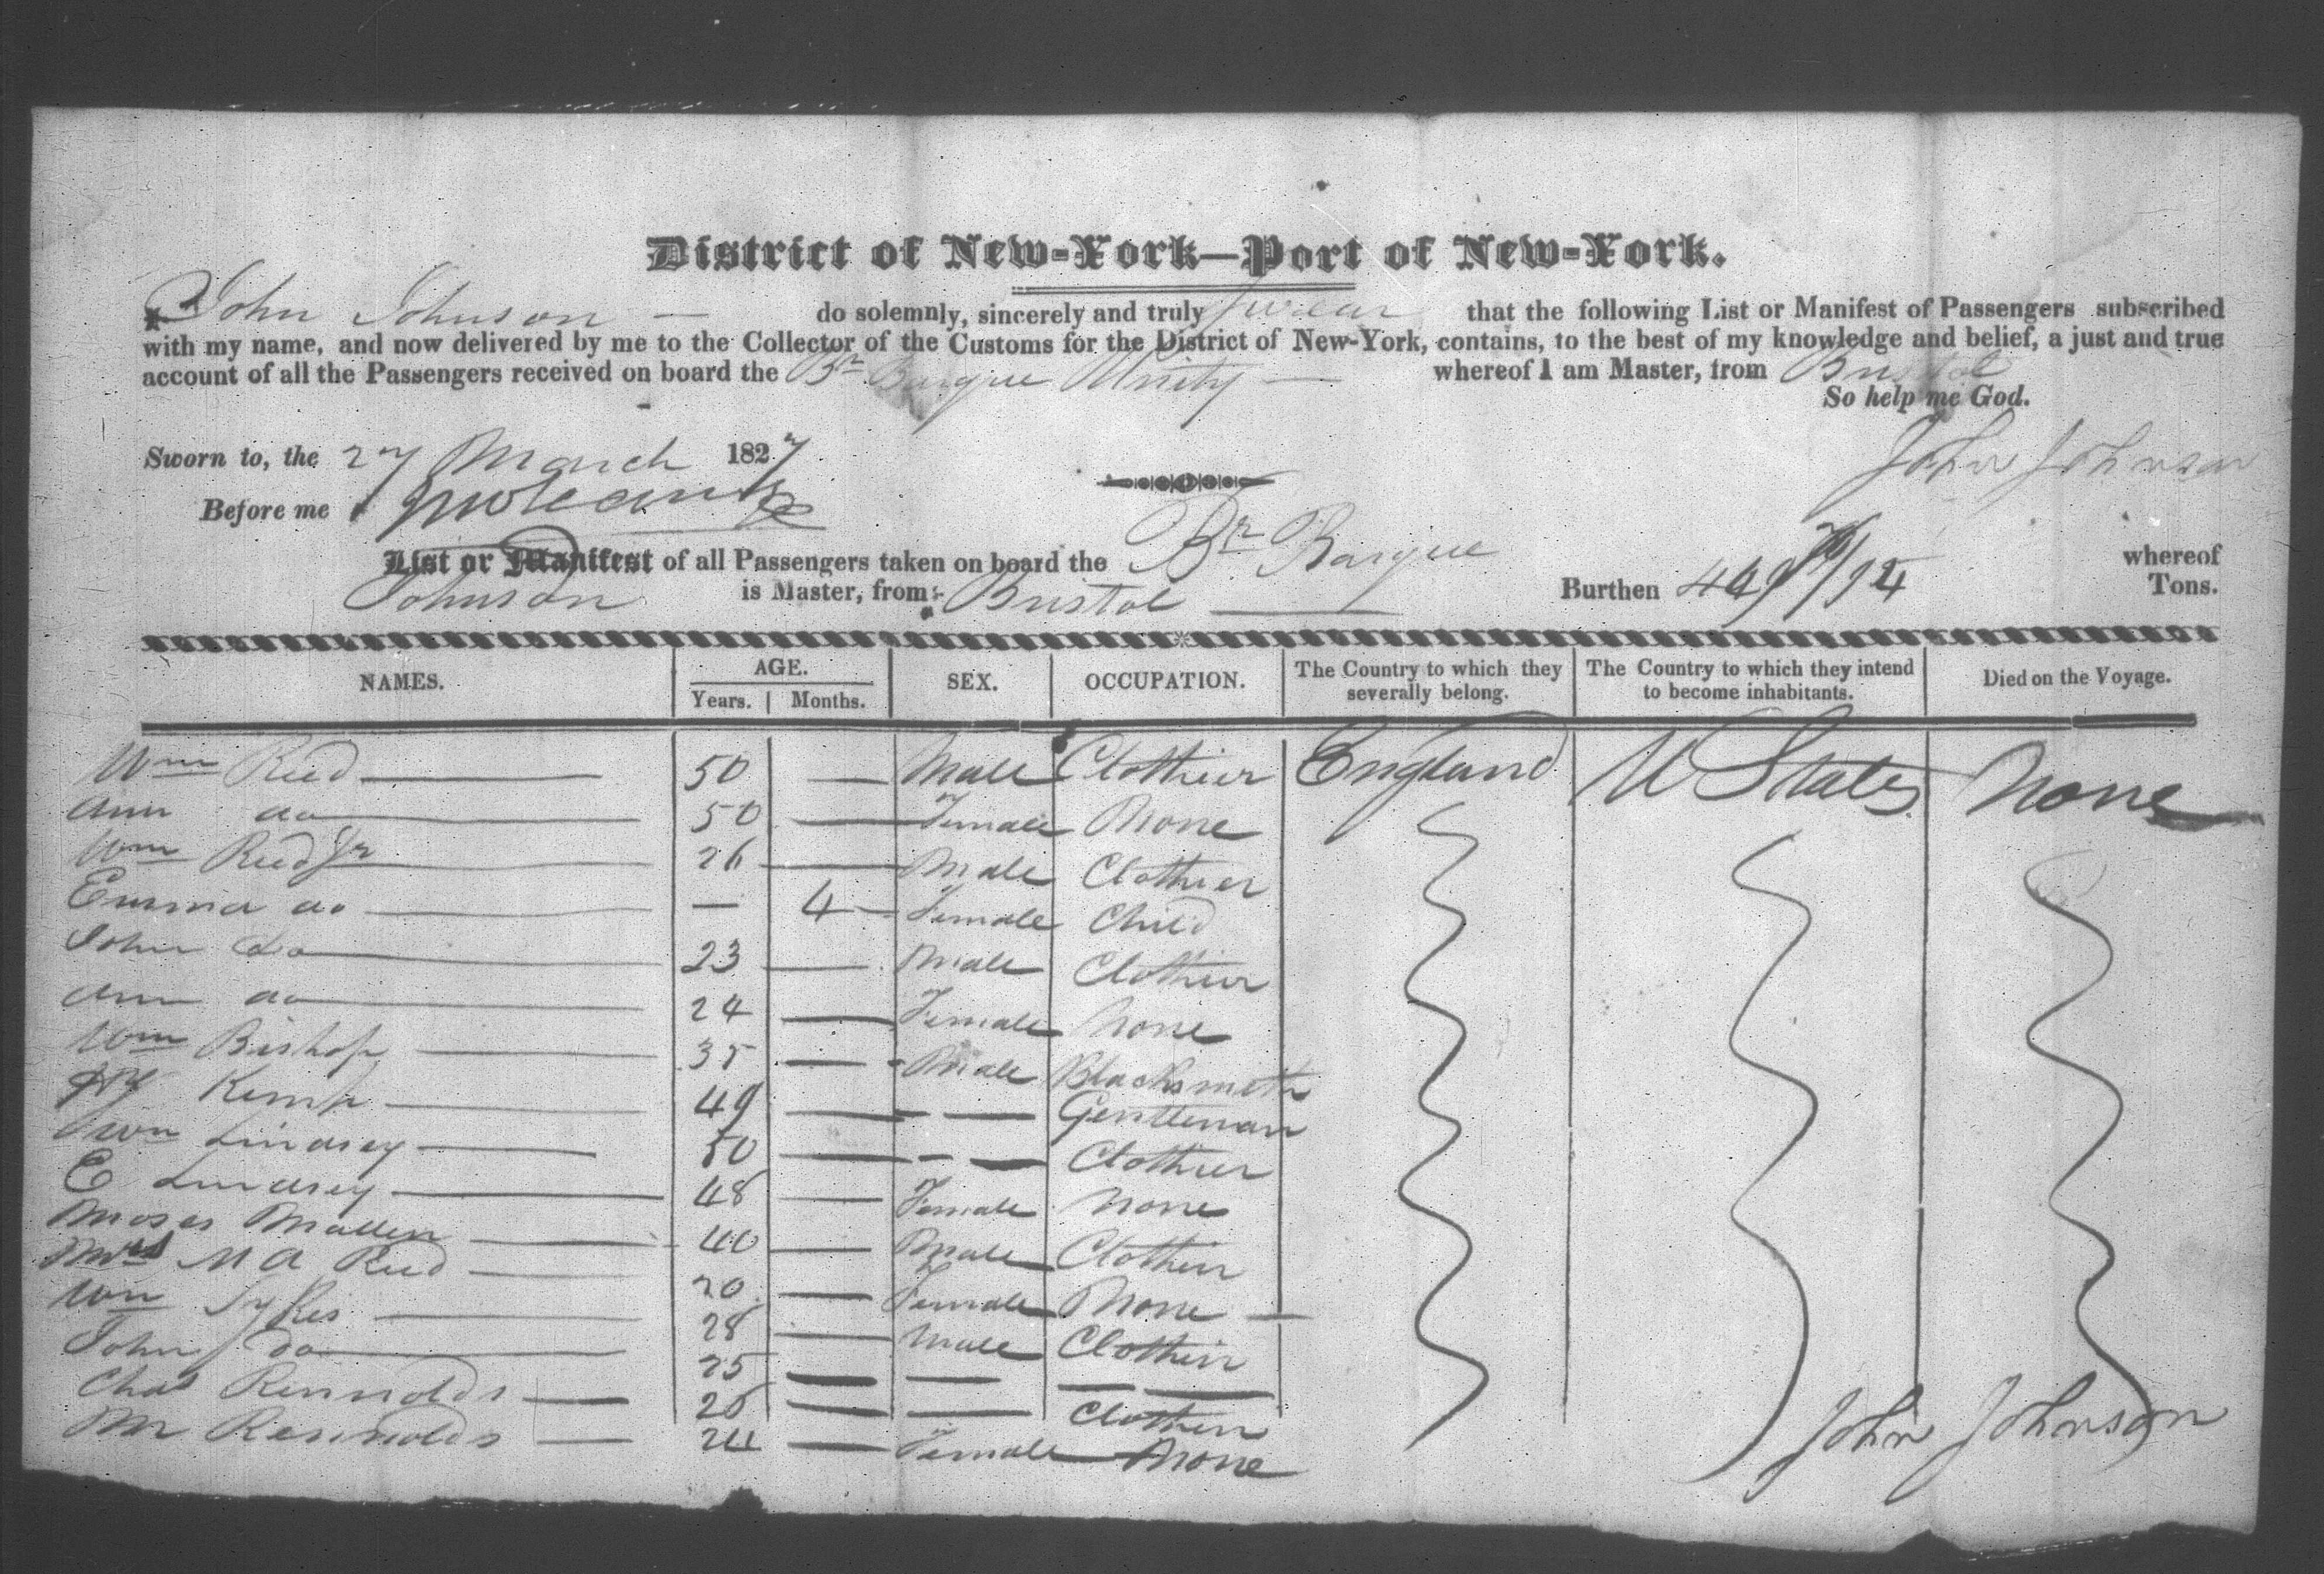 District of New-York—Port of New-York.
I John Johnson — do solemnly, sincerely and truly swear that the following List or Manifest of Passengers subscribed
with my name, and now delivered by me to the Collector of the Customs for the District of New-York, contains, to the best of my knowledge and belief, a just and true
account of all the Passengers received on board the Br Barque Unity — whereof I am Master, from Bristol
So help me God.
Sworn to, the 27 March 1827
John Johnson
Before me
List or Manifest of all Passengers taken on board the Br Barque whereof
Johnson is Master, from Bristol — Burthen Tons.
NAMES. AGE. SEX. OCCUPATION. The Country to which they severally belong. The Country to which they intend to become inhabitants. Died on the Voyage.
Years. Months.
Wm Reed — 50 — Male Clothier England U States None
Ann do — 50 — Female None
Wm Reed Jr — 26 — Male Clothier
Emma do — — 4 — Female Child
John do — 23 — Male Clothier
Ann do — 24 — Female None
Wm Bishop — 35 — Male Blacksmith
Hy Kemp — 49 — — Gentleman
Wm Lindsey — 50 — — Clothier
E Lindsey — 48 — Female None
Moses Mallen — 40 — Male Clothier
Mrs M A Reed — 20 — Female None —
Wm Sykes — 28 — Male Clothier
John do — 25 — — —
Chas Rennolds — 26 — — Clothier
M Rennolds — 24 — Female None
John Johnson